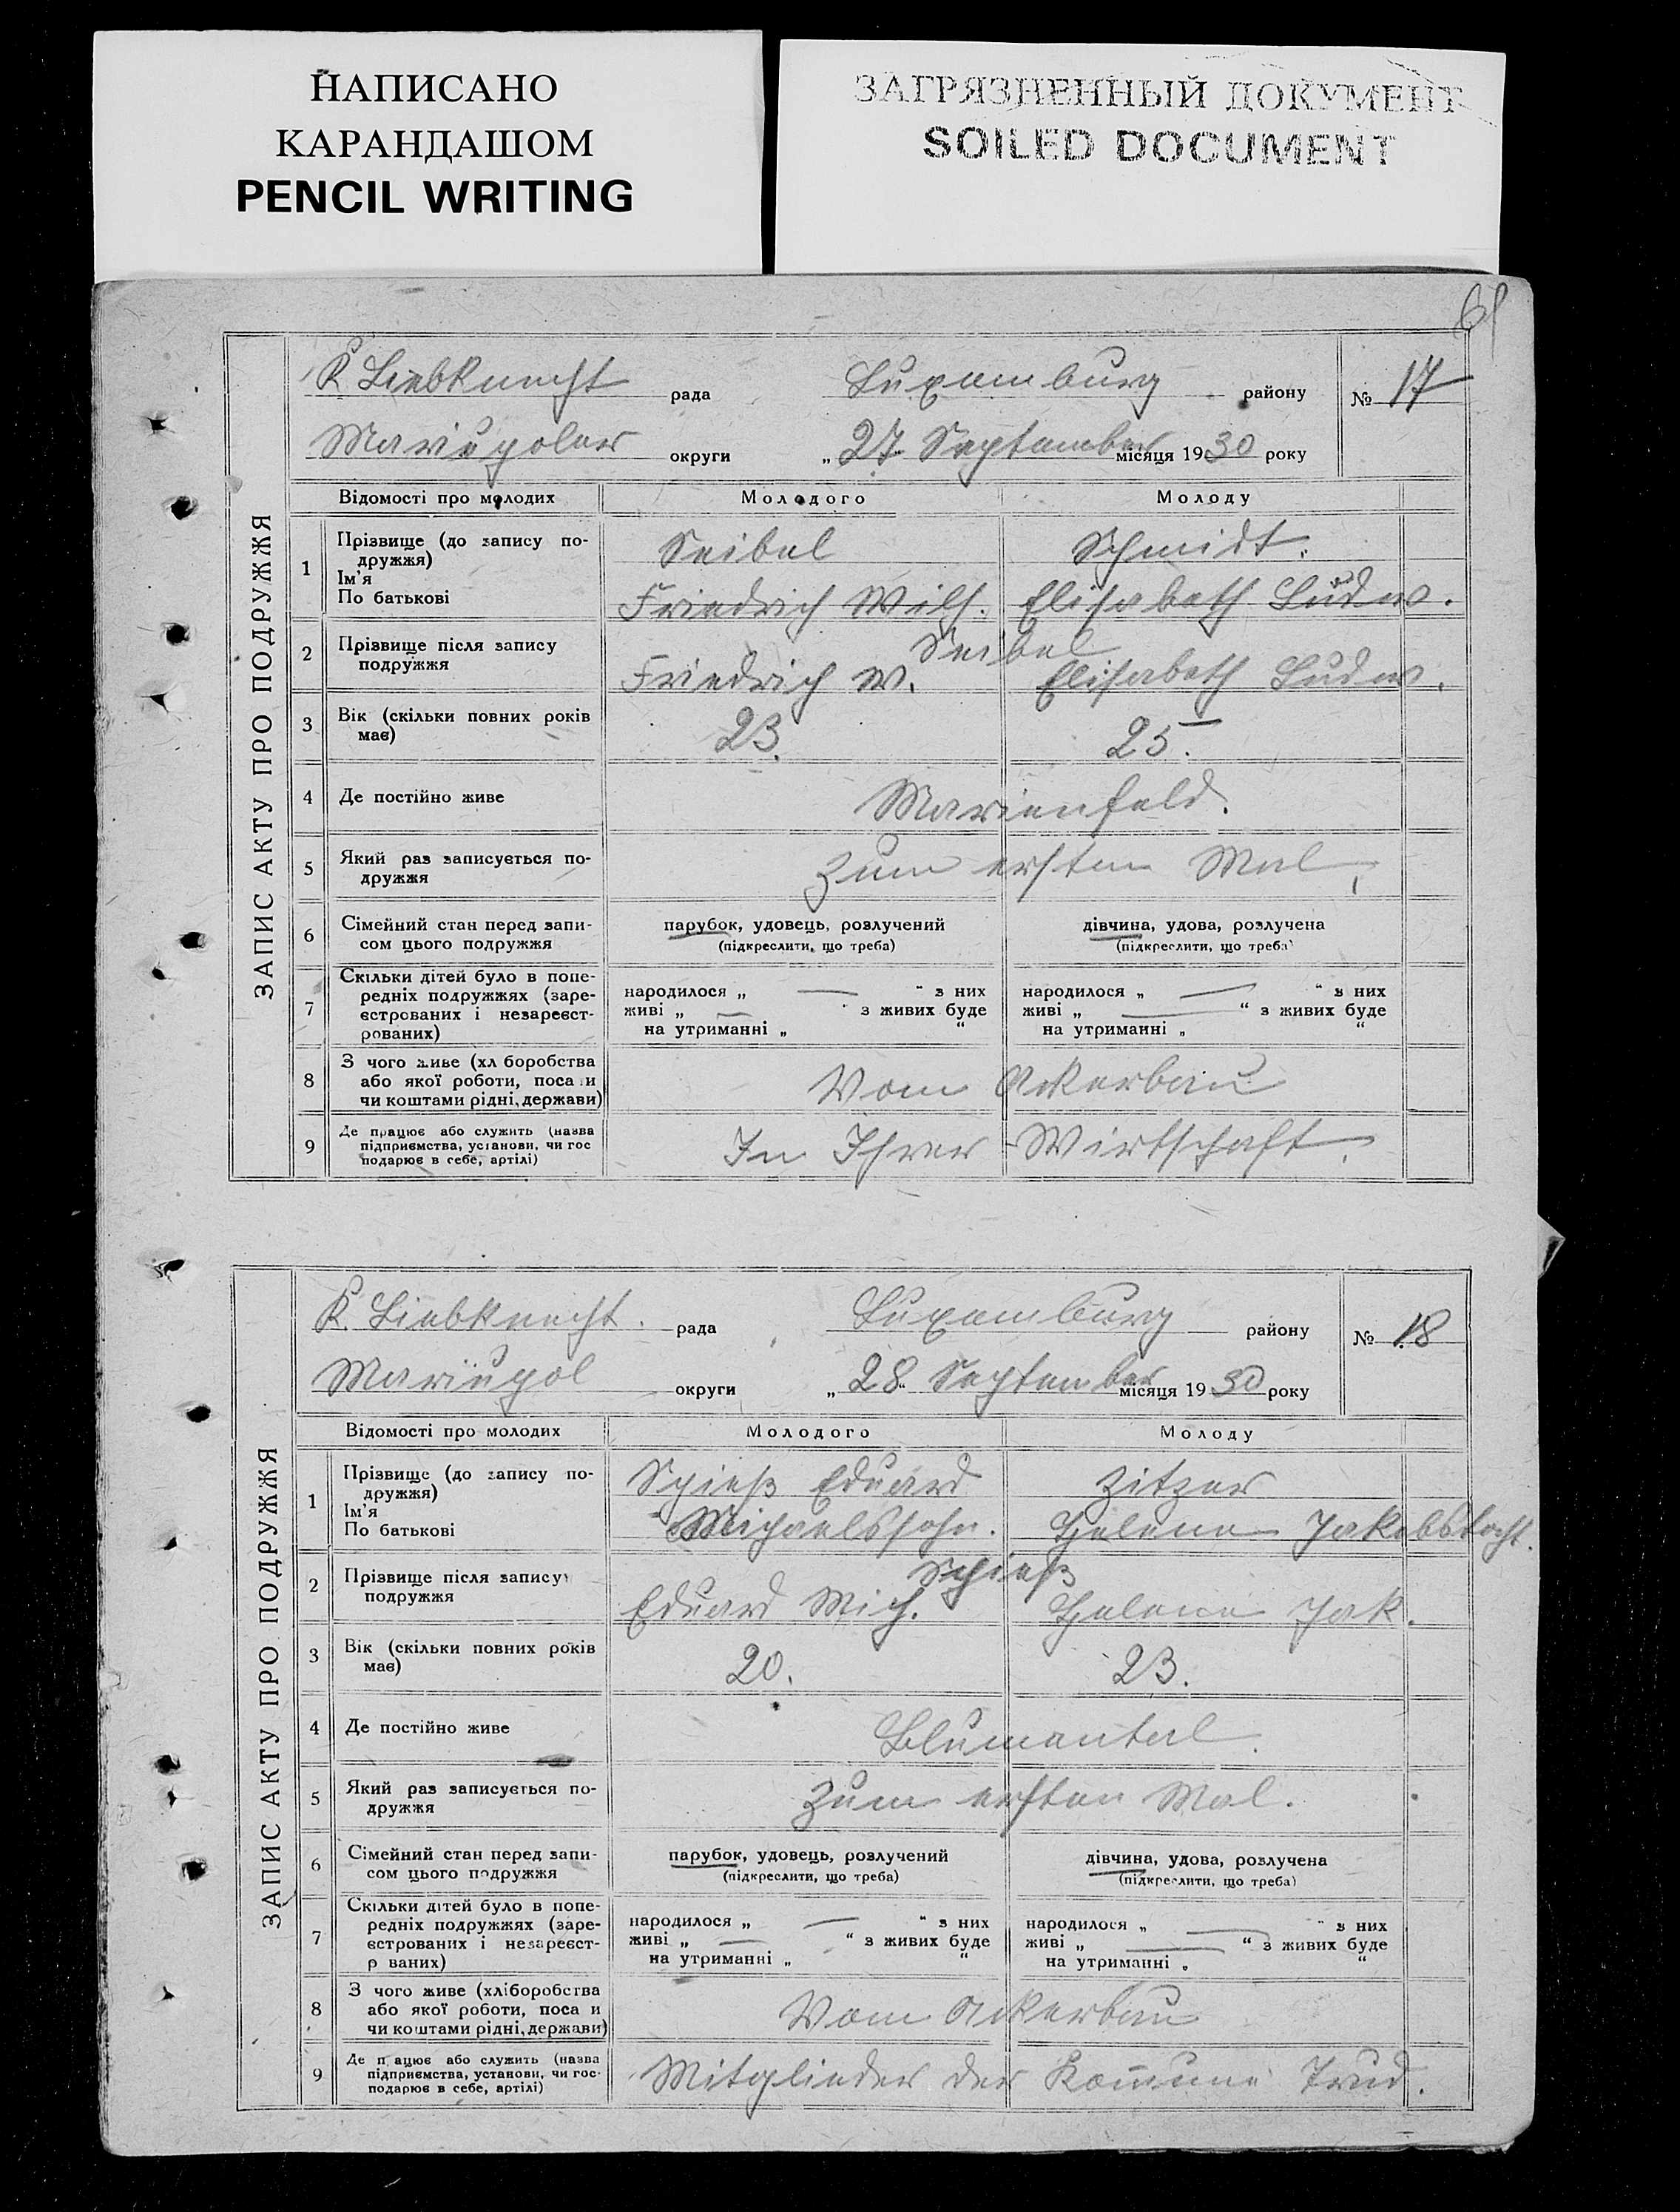 НАПИСАНО
КАРАНДАШОМ
PENCIL WRITING
ЗАГРЯЗНЕННЫЙ ДОКУМЕНТ
SOILED DOCUMENT
ЗАПИС АКТУ ПРО ПОДРУЖЖЯ
K. Liebknecht рада Luxemburg району № 17
Mariupoler округи „27. September місяця 1930 року
Відомості про молодих Молодого Молоду
1 Прізвище (до запису по-
дружжя) Seibel Schmidt.
Ім'я
По батькові Friedrich Wilh. Elisabeth Ludw.
2 Прізвище після запису Seibel
подружжя Friedrich W. Elisabeth Ludw.
3 Вік (скільки повних років
має) 23. 25.
4 Де постійно живе Marienfeld.
5 Який раз записується по-
дружжя Zum ersten Mal.
6 Сімейний стан перед запи- парубок, удовець, розлучений дівчина, удова, розлучена
сом цього подружжя (підкреслити, що треба) (підкреслити, що треба)
7 Скільки дітей було в попе-
редніх подружжях (заре- народилося „ — " з них народилося „ — “ з них
єстрованих і незареєст- живі „ — " з живих буде живі „ — “ з живих буде
рованих) на утриманні „ “ на утриманні „ “
8 З чого живе (хл боробства
або якої роботи, поса и Vom Ackerbau
чи коштами рідні, держави)
9 Де працює або служить (назва
підприємства, установи, чи гос In Ihrer Wirtschaft.
подарює в себе, артілі)
ЗАПИС АКТУ ПРО ПОДРУЖЖЯ
K. Liebknecht. рада Luxemburg району № 18
Mariupol округи „28. September місяця 1930 року
Відомості про молодих Молодого Молоду
1 Прізвище (до запису по- Spieß Eduard Zitzer
дружжя)
Ім'я
По батькові Michaelssohn. Helene Jakobstocht.
2 Прізвище після запису Spieß
подружжя Eduard Mich. Helene Jak.
3 Вік (скільки повних років
має) 20. 23.
4 Де постійно живе Blumental.
5 Який раз записується по-
дружжя Zum ersten Mal.
6 Сімейний стан перед запи- парубок, удовець, розлучений дівчина, удова, розлучена
сом цього подружжя (підкреслити, що треба) (підкреслити, що треба)
7 Скільки дітей було в попе-
редніх подружжях (заре- народилося „ — “ з них народилося „ — “ з них
єстрованих і незареєст- живі „ — “ з живих буде живі „ — “ з живих буде
р ваних) на утриманні „ “ на утриманні „ “
8 З чого живе (хліборобства
або якої роботи, поса и Vom Ackerbau
чи коштами рідні, держави)
9 Де п ацює або служить (назва
підприємства, установи, чи гос- Mitglieder der Kom̄une Trud.
подарює в себе, артілі)